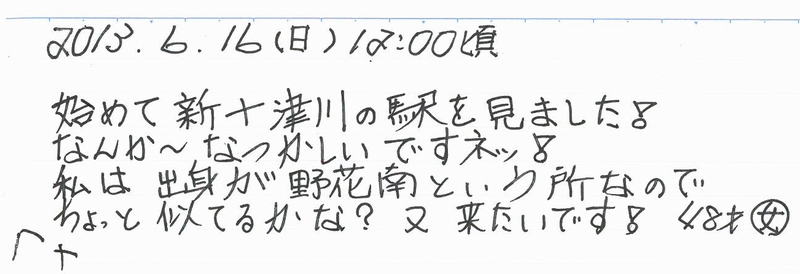 2013.6.16(日)12:00頃
始めて新十津川の駅を見ました!
なんか〜なつかしいですネッ!
私は出身が野花南という所なので
ちょっと似てるかな?又来たいです! 48才㊛